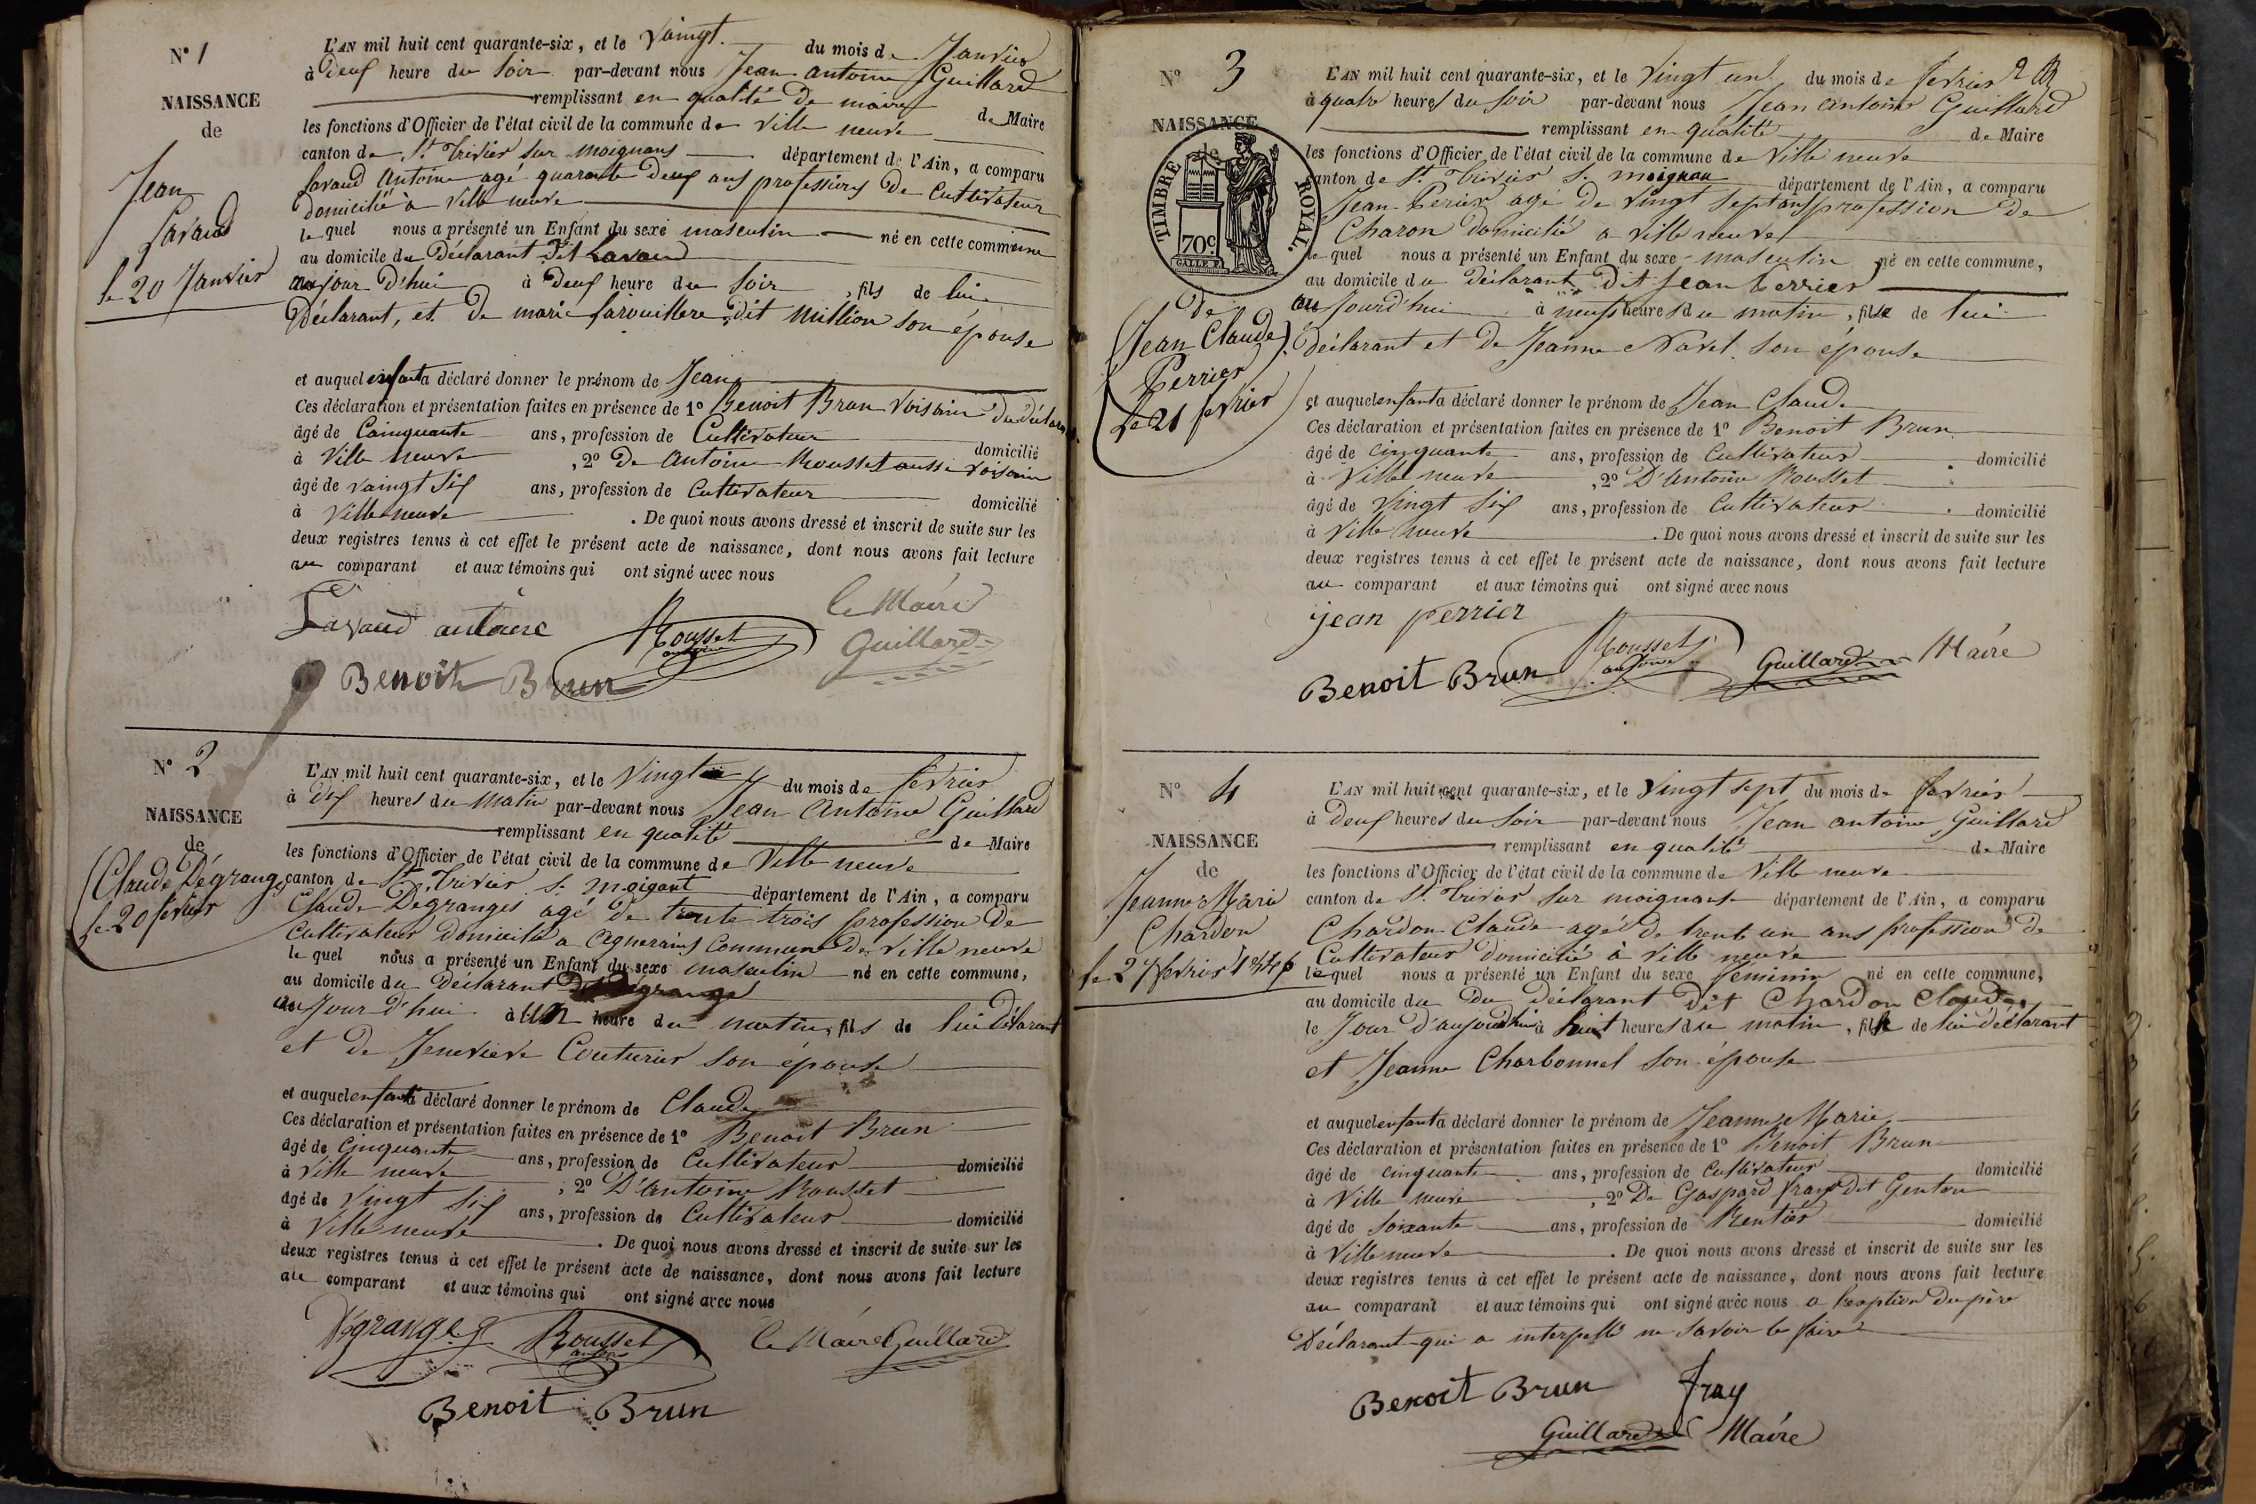 N° 1
NAISSANCE
de
Jean
Lavaud
le 20 Janvier
L'AN mil huit cent quarante-six, et le vaingt du mois de Janvier
à deux heure du soir par-devant nous Jean antoine Guillard
remplissant en qualité de maire de Maire
les fonctions d'Officier de l'état civil de la commune de Ville neuve
canton de St. Trivier sur moignans département de l'Ain, a comparu
Lavaud Antoine agé quarante deux ans professions de Cultivateur
domicilié a Ville neuve
lequel nous a présenté un Enfant du sexe masculin né en cette commune
au domicile du Déclarant dit Lavaud
aujour d'hui à deux heure du soir, fils de lui
Déclarant, et De marie farouillere dit Million son épouse
et auquel enfant a déclaré donner le prénom de Jean
Ces déclaration et présentation faites en présence de 1° Benoit Brun Voisin du déclara
âgé de Cainquante ans, profession de Cultivateur domicilié
à Ville neuve, 2° De Antoine Rousset aussi voisin
âgé de vaingt six ans, profession de Cultivateur domicilié
à Ville neuve. De quoi nous avons dressé et inscrit de suite sur les
deux registres tenus à cet effet le présent acte de naissance, dont nous avons fait lecture
au comparant et aux témoins qui ont signé avec nous
Lavaud antoine Rousset antoine le Maire
Guillard
Benoit Brun
N° 2
NAISSANCE
de
Claude Dégranges
le 20 fevrier
L'AN mil huit cent quarante-six, et le Vingt du mois de fevrier
à dix heures du Matin par-devant nous Jean Antoine Guillard
remplissant en qualité de Maire
les fonctions d'Officier de l'état civil de la commune de Ville neuve
canton de St. Trivier s. moignant département de l'Ain, a comparu
Claude Degranges agé de trente trois profession De
Cultivateur domicilié a Agnerains Commune de Ville neuve
lequel nous a présenté un Enfant du sexe masculin né en cette commune,
au domicile du Déclarant
au Jour d'hui à un heure du matin, fils de lui Déclarant
et de Jenevieve Couturier son épouse
et auquel enfant a déclaré donner le prénom de Claude
Ces déclaration et présentation faites en présence de 1° Benoit Brun
âgé de Cinquante ans, profession de Cultivateur domicilié
à Ville neuve, 2° D'antoine Rousset
âgé de Vingt six ans, profession de Cultivateur domicilié
à Ville neuve. De quoi nous avons dressé et inscrit de suite sur les
deux registres tenus à cet effet le présent acte de naissance, dont nous avons fait lecture
au comparant et aux témoins qui ont signé avec nous
Degranges Rousset antoine le Maire Guillard
Benoit Brun
N° 3
NAISSANCE
de
TIMBRE ROYAL.
70c
de
Jean Claude
Perrier
le 21 fevrier
L'AN mil huit cent quarante-six, et le Vingt un du mois de fevrier
à quatre heures du soir par-devant nous Jean Antoine Guillard
remplissant en qualité de Maire
les fonctions d'Officier de l'état civil de la commune de Ville neuve
canton de St. Trivier s. moignan département de l'Ain, a comparu
Jean Perier agé de vingt sept ans profession de
Charon domicilié a Ville neuve
lequel nous a présenté un Enfant du sexe masculin né en cette commune,
au domicile du déclarant dit Jean Perrier
au jourd'hui à neuf heures du matin, fils de lui
Déclarant et de Jeanne Navel son épouse
et auquel enfant a déclaré donner le prénom de Jean Claude
Ces déclaration et présentation faites en présence de 1° Benoit Brun
âgé de cinquante ans, profession de Cultivateur domicilié
à Ville neuve, 2° D'antoine Rousset
âgé de Vingt six ans, profession de Cultivateur domicilié
à Ville neuve. De quoi nous avons dressé et inscrit de suite sur les
deux registres tenus à cet effet le présent acte de naissance, dont nous avons fait lecture
au comparant et aux témoins qui ont signé avec nous
jean perrier
Benoit Brun Rousset antoine Guillard Maire
N° 4
NAISSANCE
de
Jeanne Marie
Chardon
le 27 fevrier 1846
L'AN mil huit cent quarante-six, et le Vingt sept du mois de fevrier
à deux heures du soir par-devant nous Jean antoine Guillard
remplissant en qualité de Maire
les fonctions d'Officier de l'état civil de la commune de Ville neuve
canton de St. Trivier sur moignans département de l'Ain, a comparu
Chardon Claude agé de trente un ans profession de
Cultivateur domicilié à Ville neuve
lequel nous a présenté un Enfant du sexe féminin né en cette commune,
au domicile du du déclarant dit Chardon Claude
le Jour d'aujourdhui à huit heures du matin, fille de lui déclarant
et Jeanne Charbonnel son épouse
et auquel enfant a déclaré donner le prénom de Jeanne Marie
Ces déclaration et présentation faites en présence de 1° Benoit Brun
âgé de cinquante ans, profession de Cultivateur domicilié
à Ville neuve, 2° De Gaspard fray dit Genton
âgé de soixante ans, profession de Rentier domicilié
à Ville neuve. De quoi nous avons dressé et inscrit de suite sur les
deux registres tenus à cet effet le présent acte de naissance, dont nous avons fait lecture
au comparant et aux témoins qui ont signé avec nous a l'exeption du père
Déclarant qui a interpellé ne savoir le faire
Benoit Brun fray
Guillard Maire